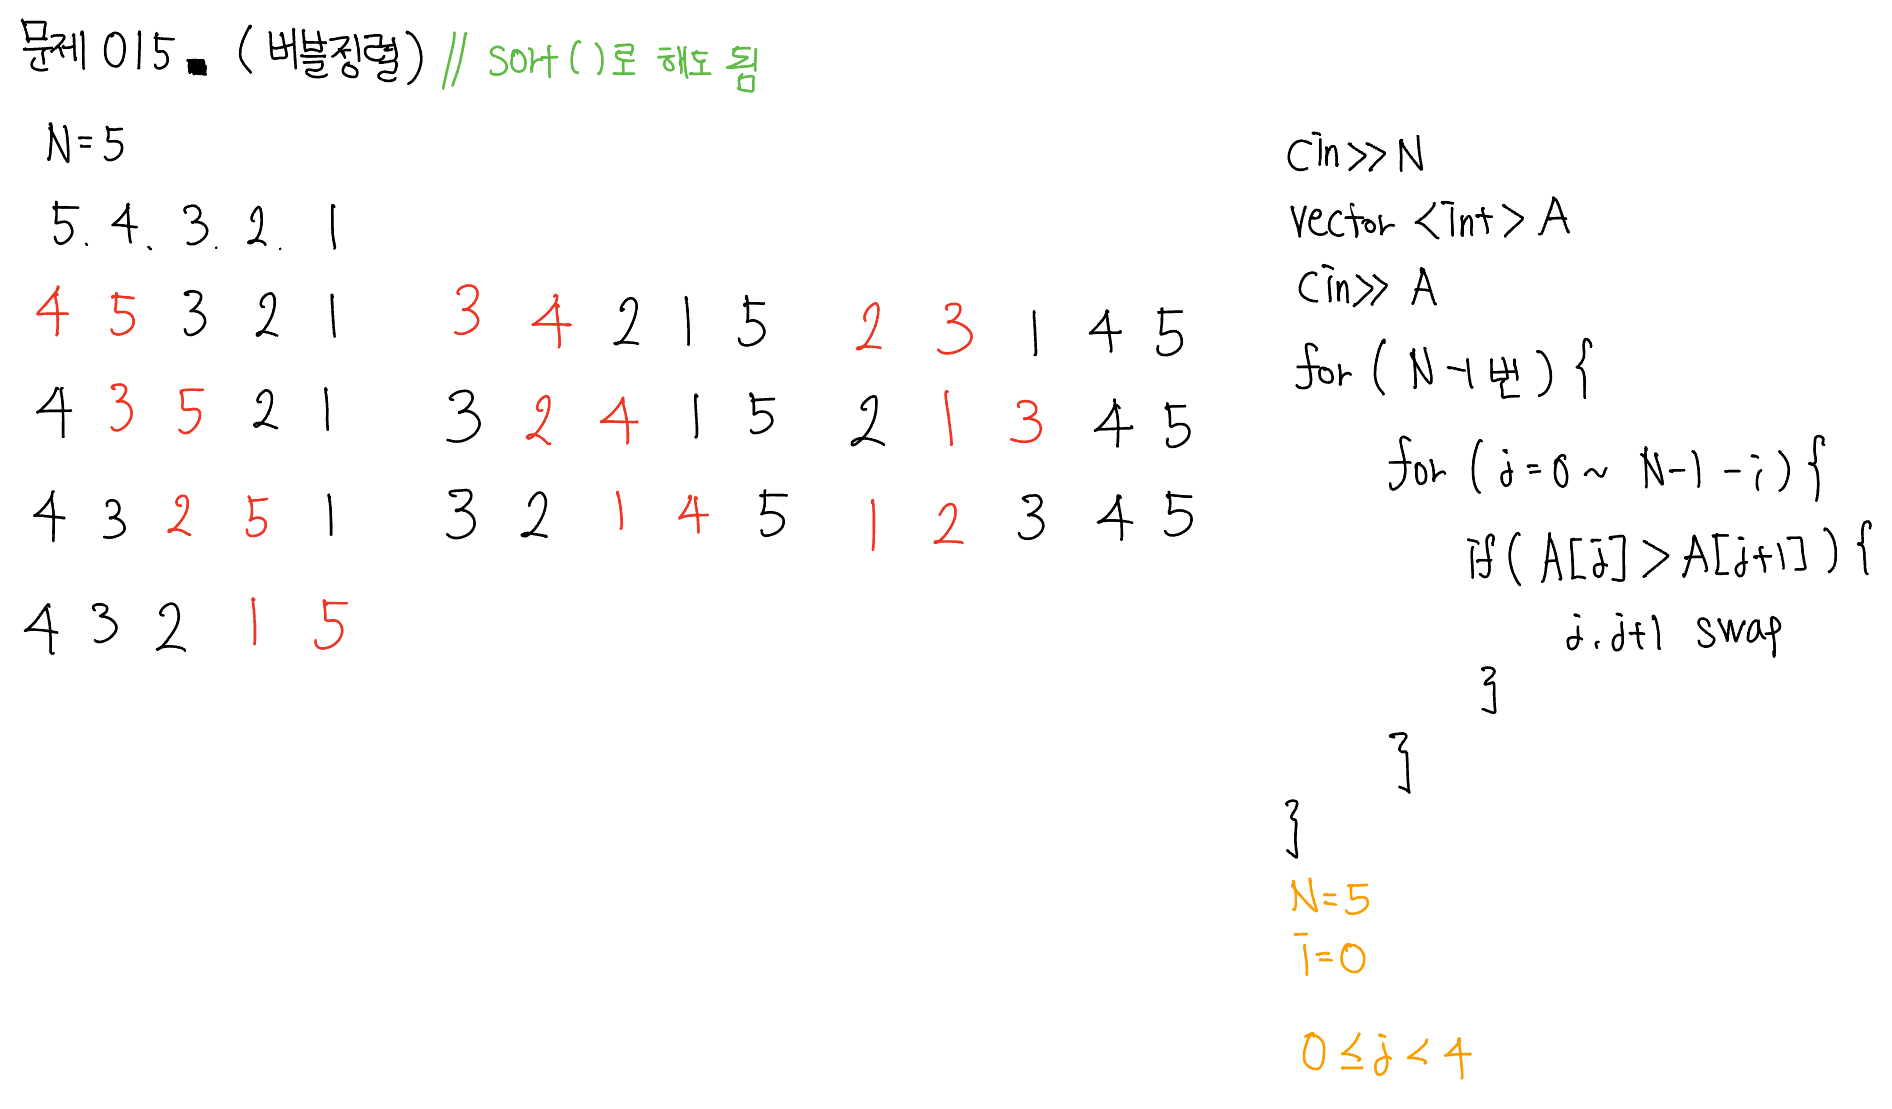 문제 015. (버블정렬) // sort()로 해도 됨
N=5
5. 4. 3. 2. 1
4 5 3 2 1
4 3 5 2 1
4 3 2 5 1
4 3 2 1 5
3 4 2 1 5
3 2 4 1 5
3 2 1 4 5
2 3 1 4 5
2 1 3 4 5
1 2 3 4 5
cin>>N
vector <int> A
cin>> A
for ( N-1번 ) {
for ( j=0~ N-1-i ) {
if ( A[j] > A[j+1] ) {
j. j+1 swap
}
}
}
N=5
i=0
0≤j<4